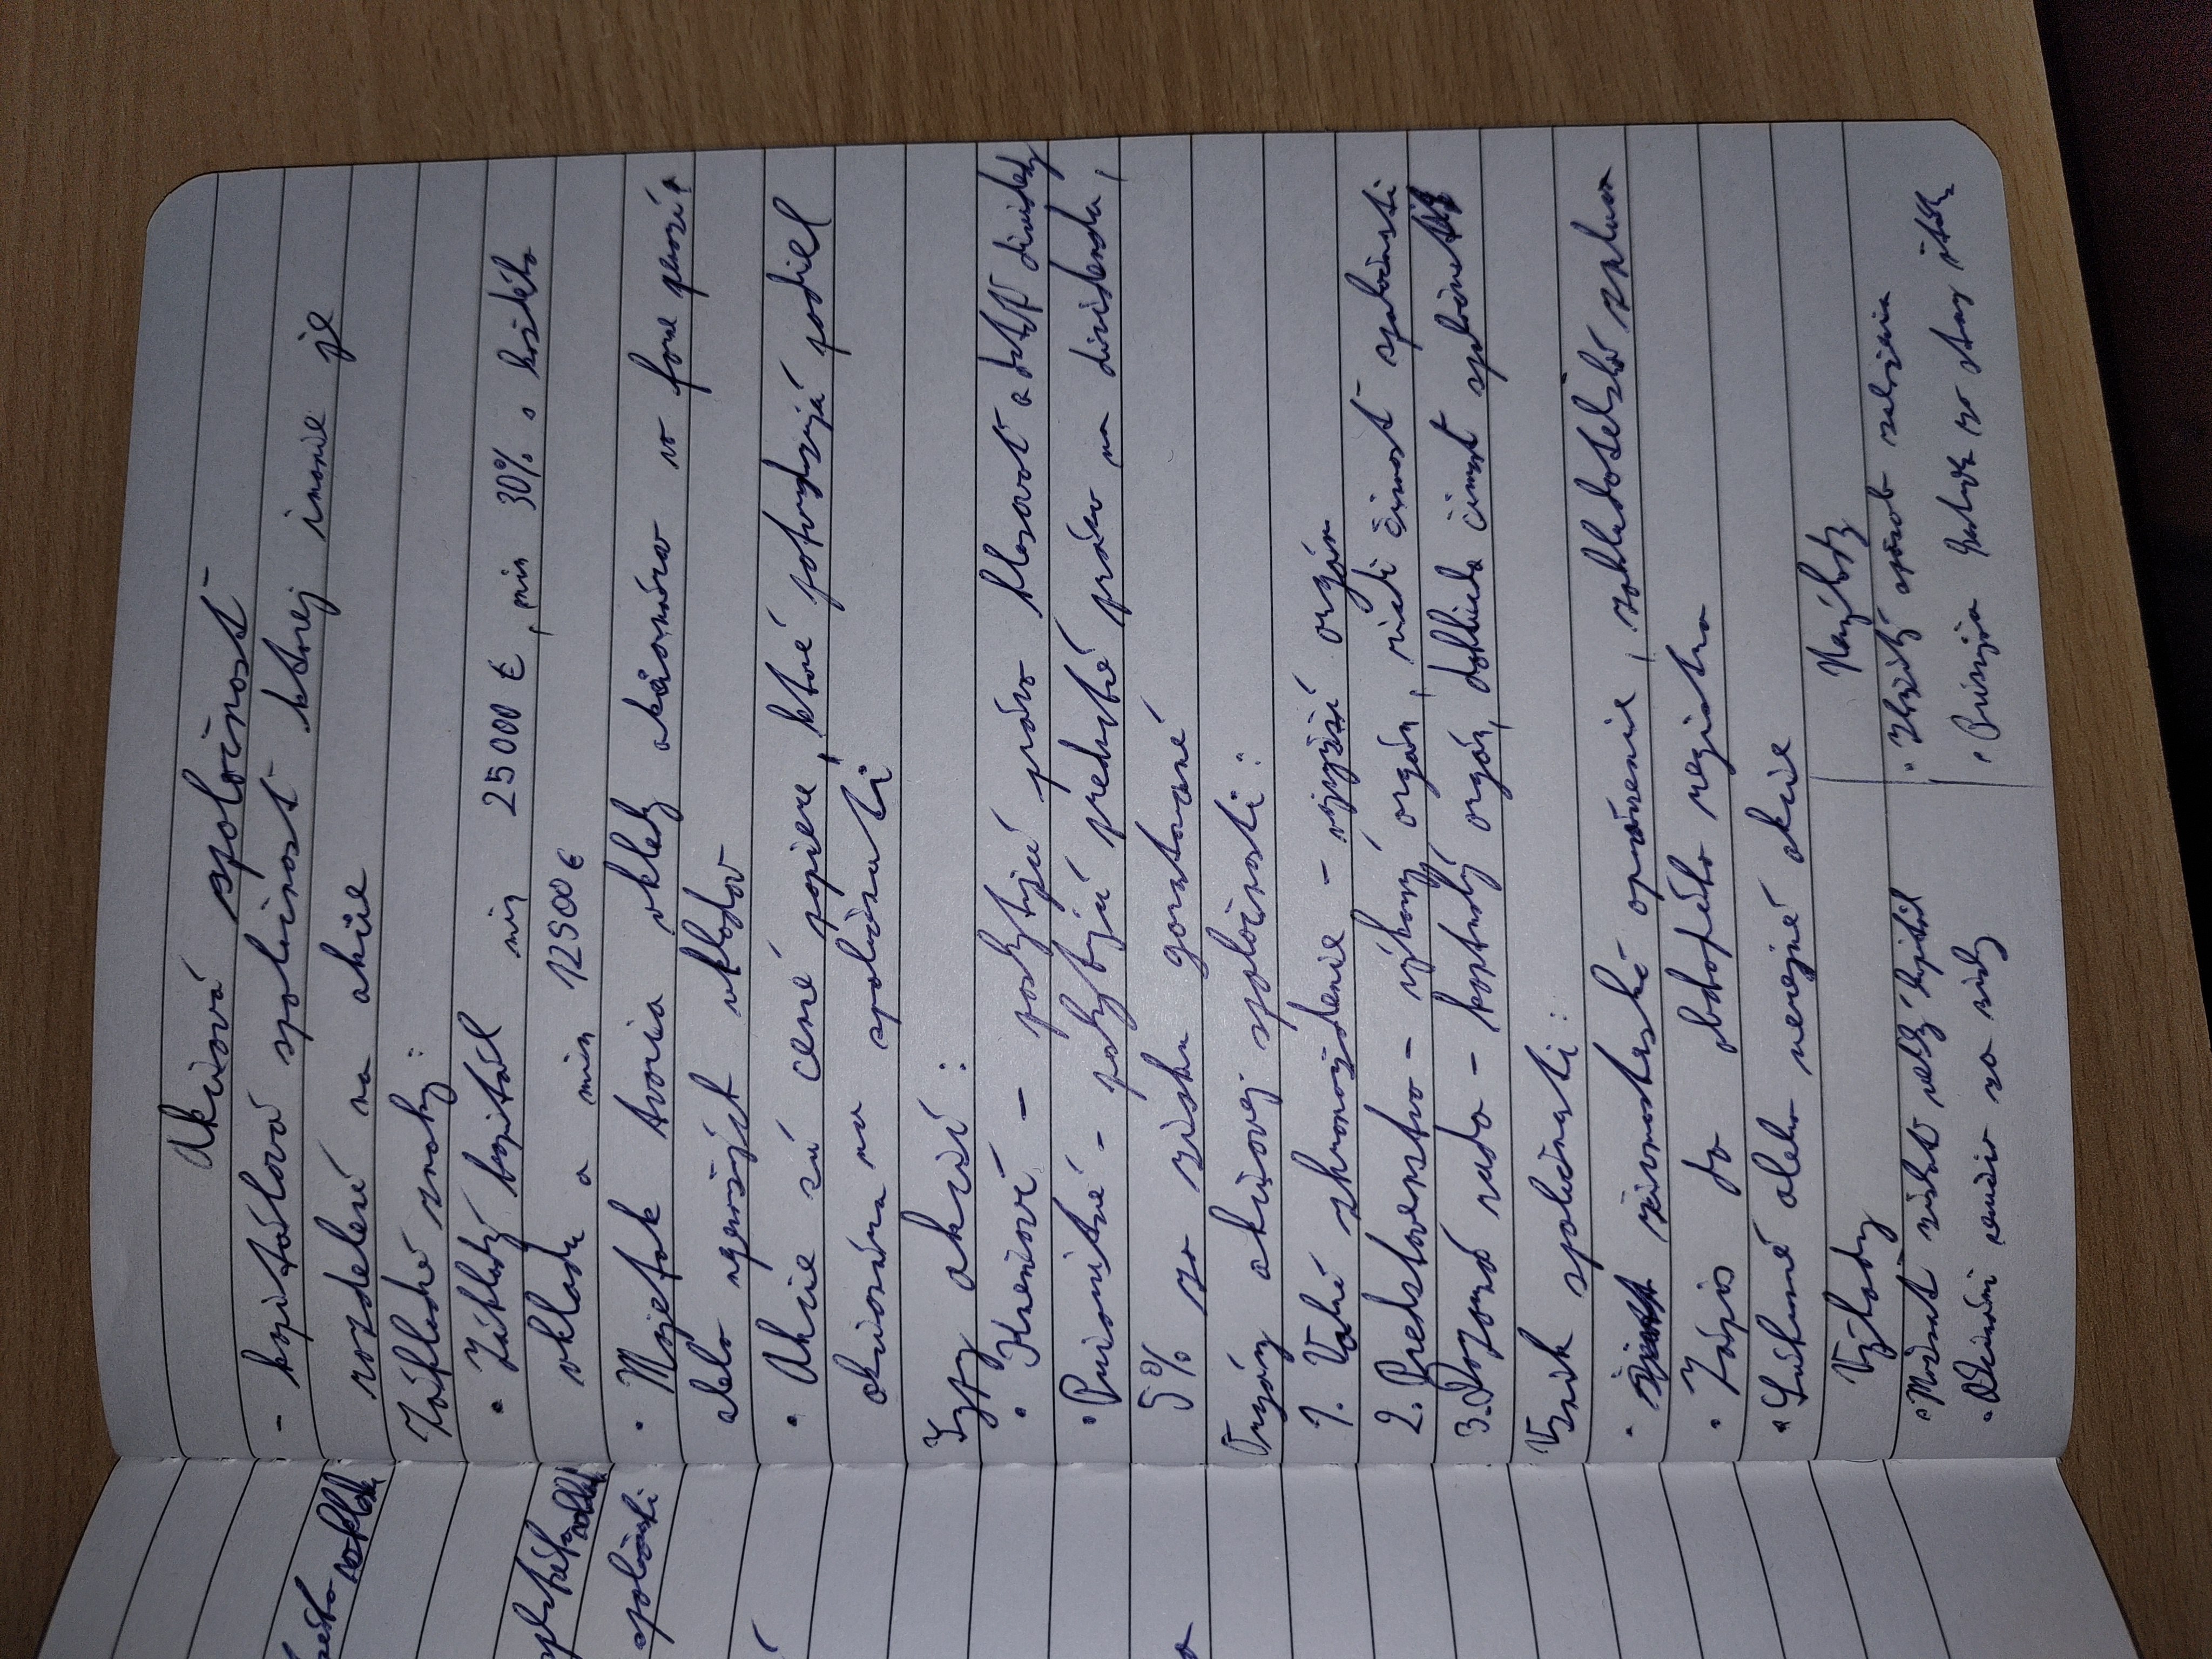 Akciová spoločnosť
- kapitálová spoločnosť ktorej imanie je
rozdelené na akcie
Základné znaky:
• Základný kapitál min 25 000 €, min 30% z každého
vkladu a min 12500 €
• Majetok tvoria vklady akcionárov vo forme peňazí
alebo nepeňažných vkladov
• Akcie sú cenné papiere, ktoré potvrdzujú podiel
akcionára na spoločnosti
Typy akcií:
• Kmeňové - poskytujú právo hlasovať a dostať dividendy
• Prioritné - poskytujú prednostné právo na dividendu,
5% zo zisku garantované
Orgány akciovej spoločnosti:
1. Valné zhromaždenie - najvyšší orgán
2. Predstavenstvo - výkonný orgán, riadi činnosť spoločnosti
3. Dozorná rada - kontrolný orgán, dohliada činnosť spoločnosti
Vznik spoločnosti:
• živnostenské oprávnenie, zakladateľská zmluva
• Zápis do obchodného registra
• Súkromné alebo verejné akcie
Výhody
Nevýhody
• Možnosť získať veľký kapitál
• Zložitý spôsob založenia
• Akcionári neručia za záväzky